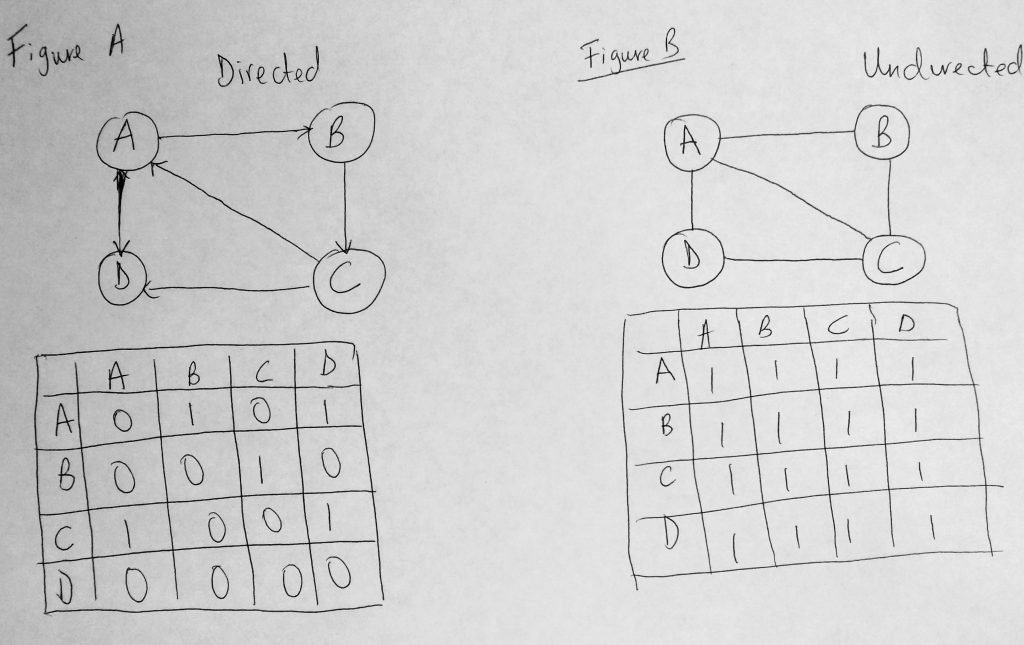 Figure A
Directed
A
B
D
C
A B C D
A 0 1 0 1
B 0 0 1 0
C 1 0 0 1
D 0 0 0 0
Figure B
Undirected
A
B
D
C
A B C D
A 1 1 1 1
B 1 1 1 1
C 1 1 1 1
D 1 1 1 1